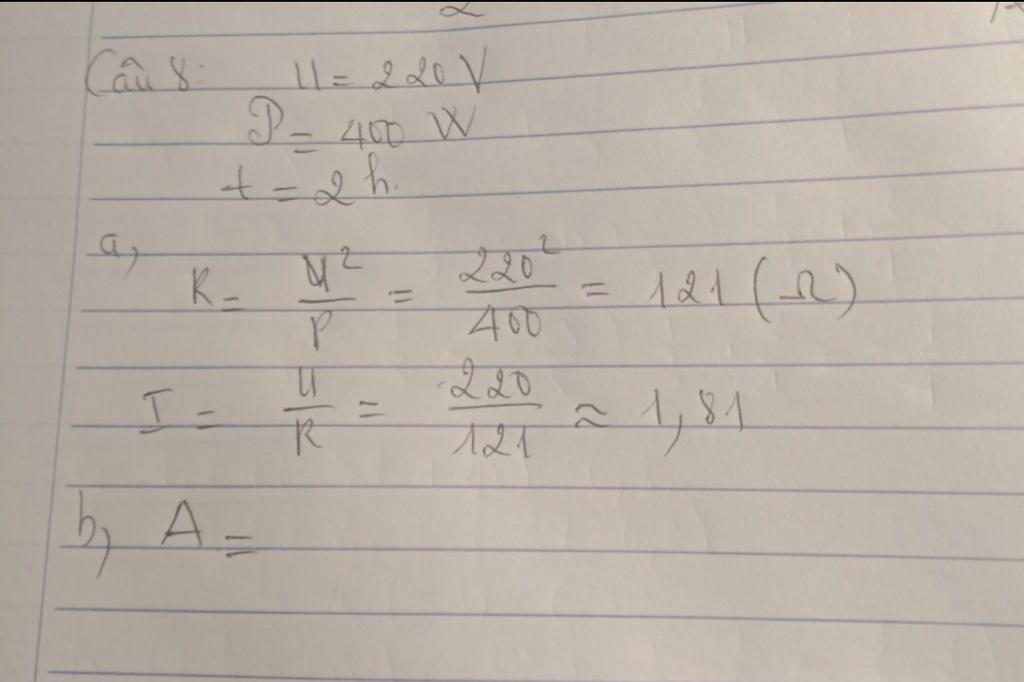 2
Câu 8: U = 220 V
P = 400 W
t = 2 h.
a, R = U²/P = 220²/400 = 121 (Ω)
I = U/R = 220/121 ≈ 1,81
b, A =